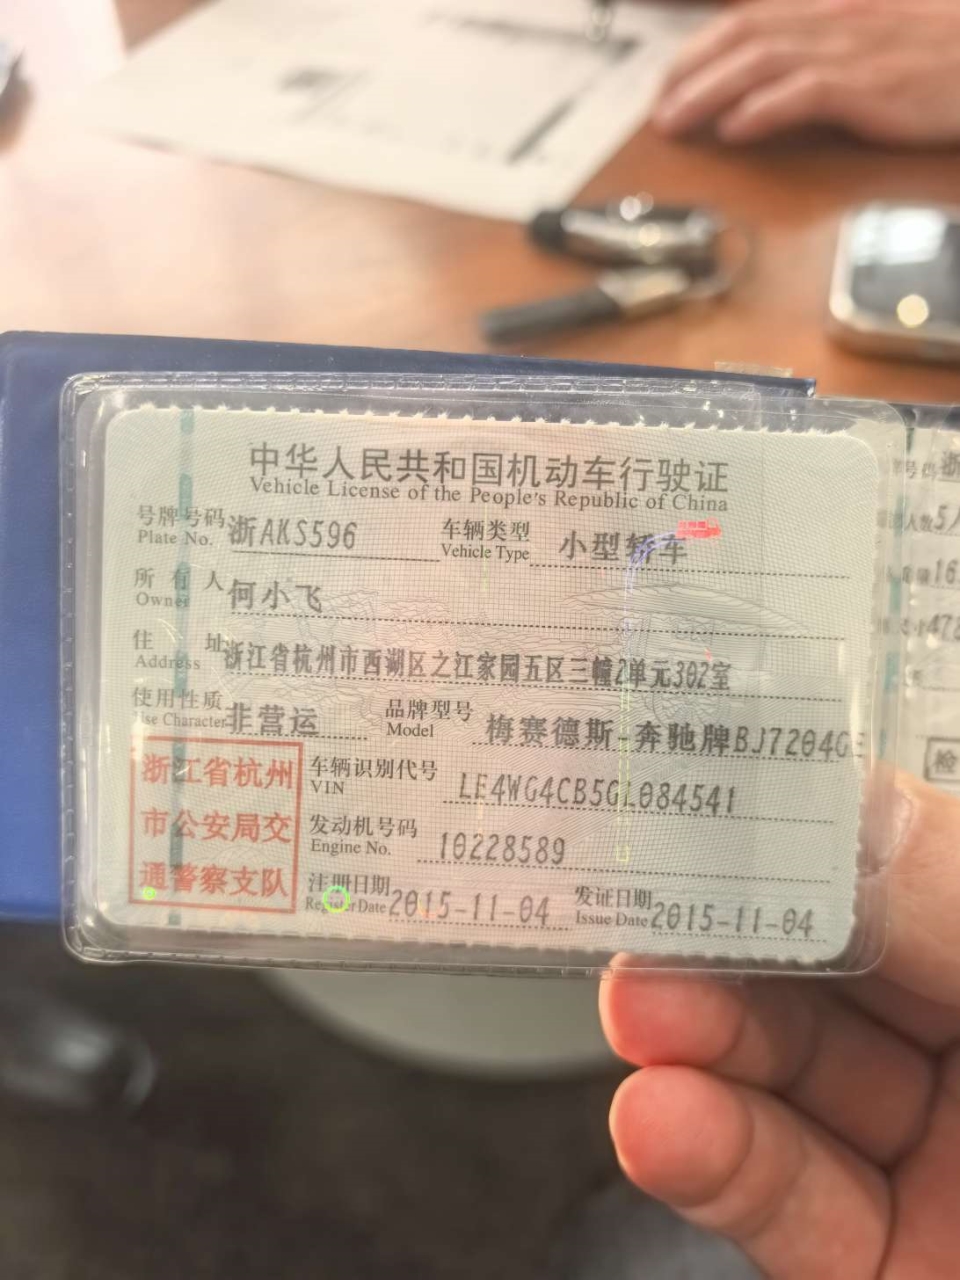 中华人民共和国机动车行驶证
Vehicle License of the People's Republic of China
号牌号码 浙AKS596 车辆类型 小型轿车
Plate No. Vehicle Type
所有人 何小飞
Owner
住址 浙江省杭州市西湖区之江家园五区三幢2单元302室
Address
使用性质 非营运 品牌型号 梅赛德斯-奔驰牌BJ7204GE
Use Character Model
浙江省杭州
市公安局交
通警察支队
车辆识别代号 LE4WG4CB5GL084541
VIN
发动机号码 10228589
Engine No.
注册日期 2015-11-04 发证日期 2015-11-04
Register Date Issue Date
号码 浙
人数 5人
检